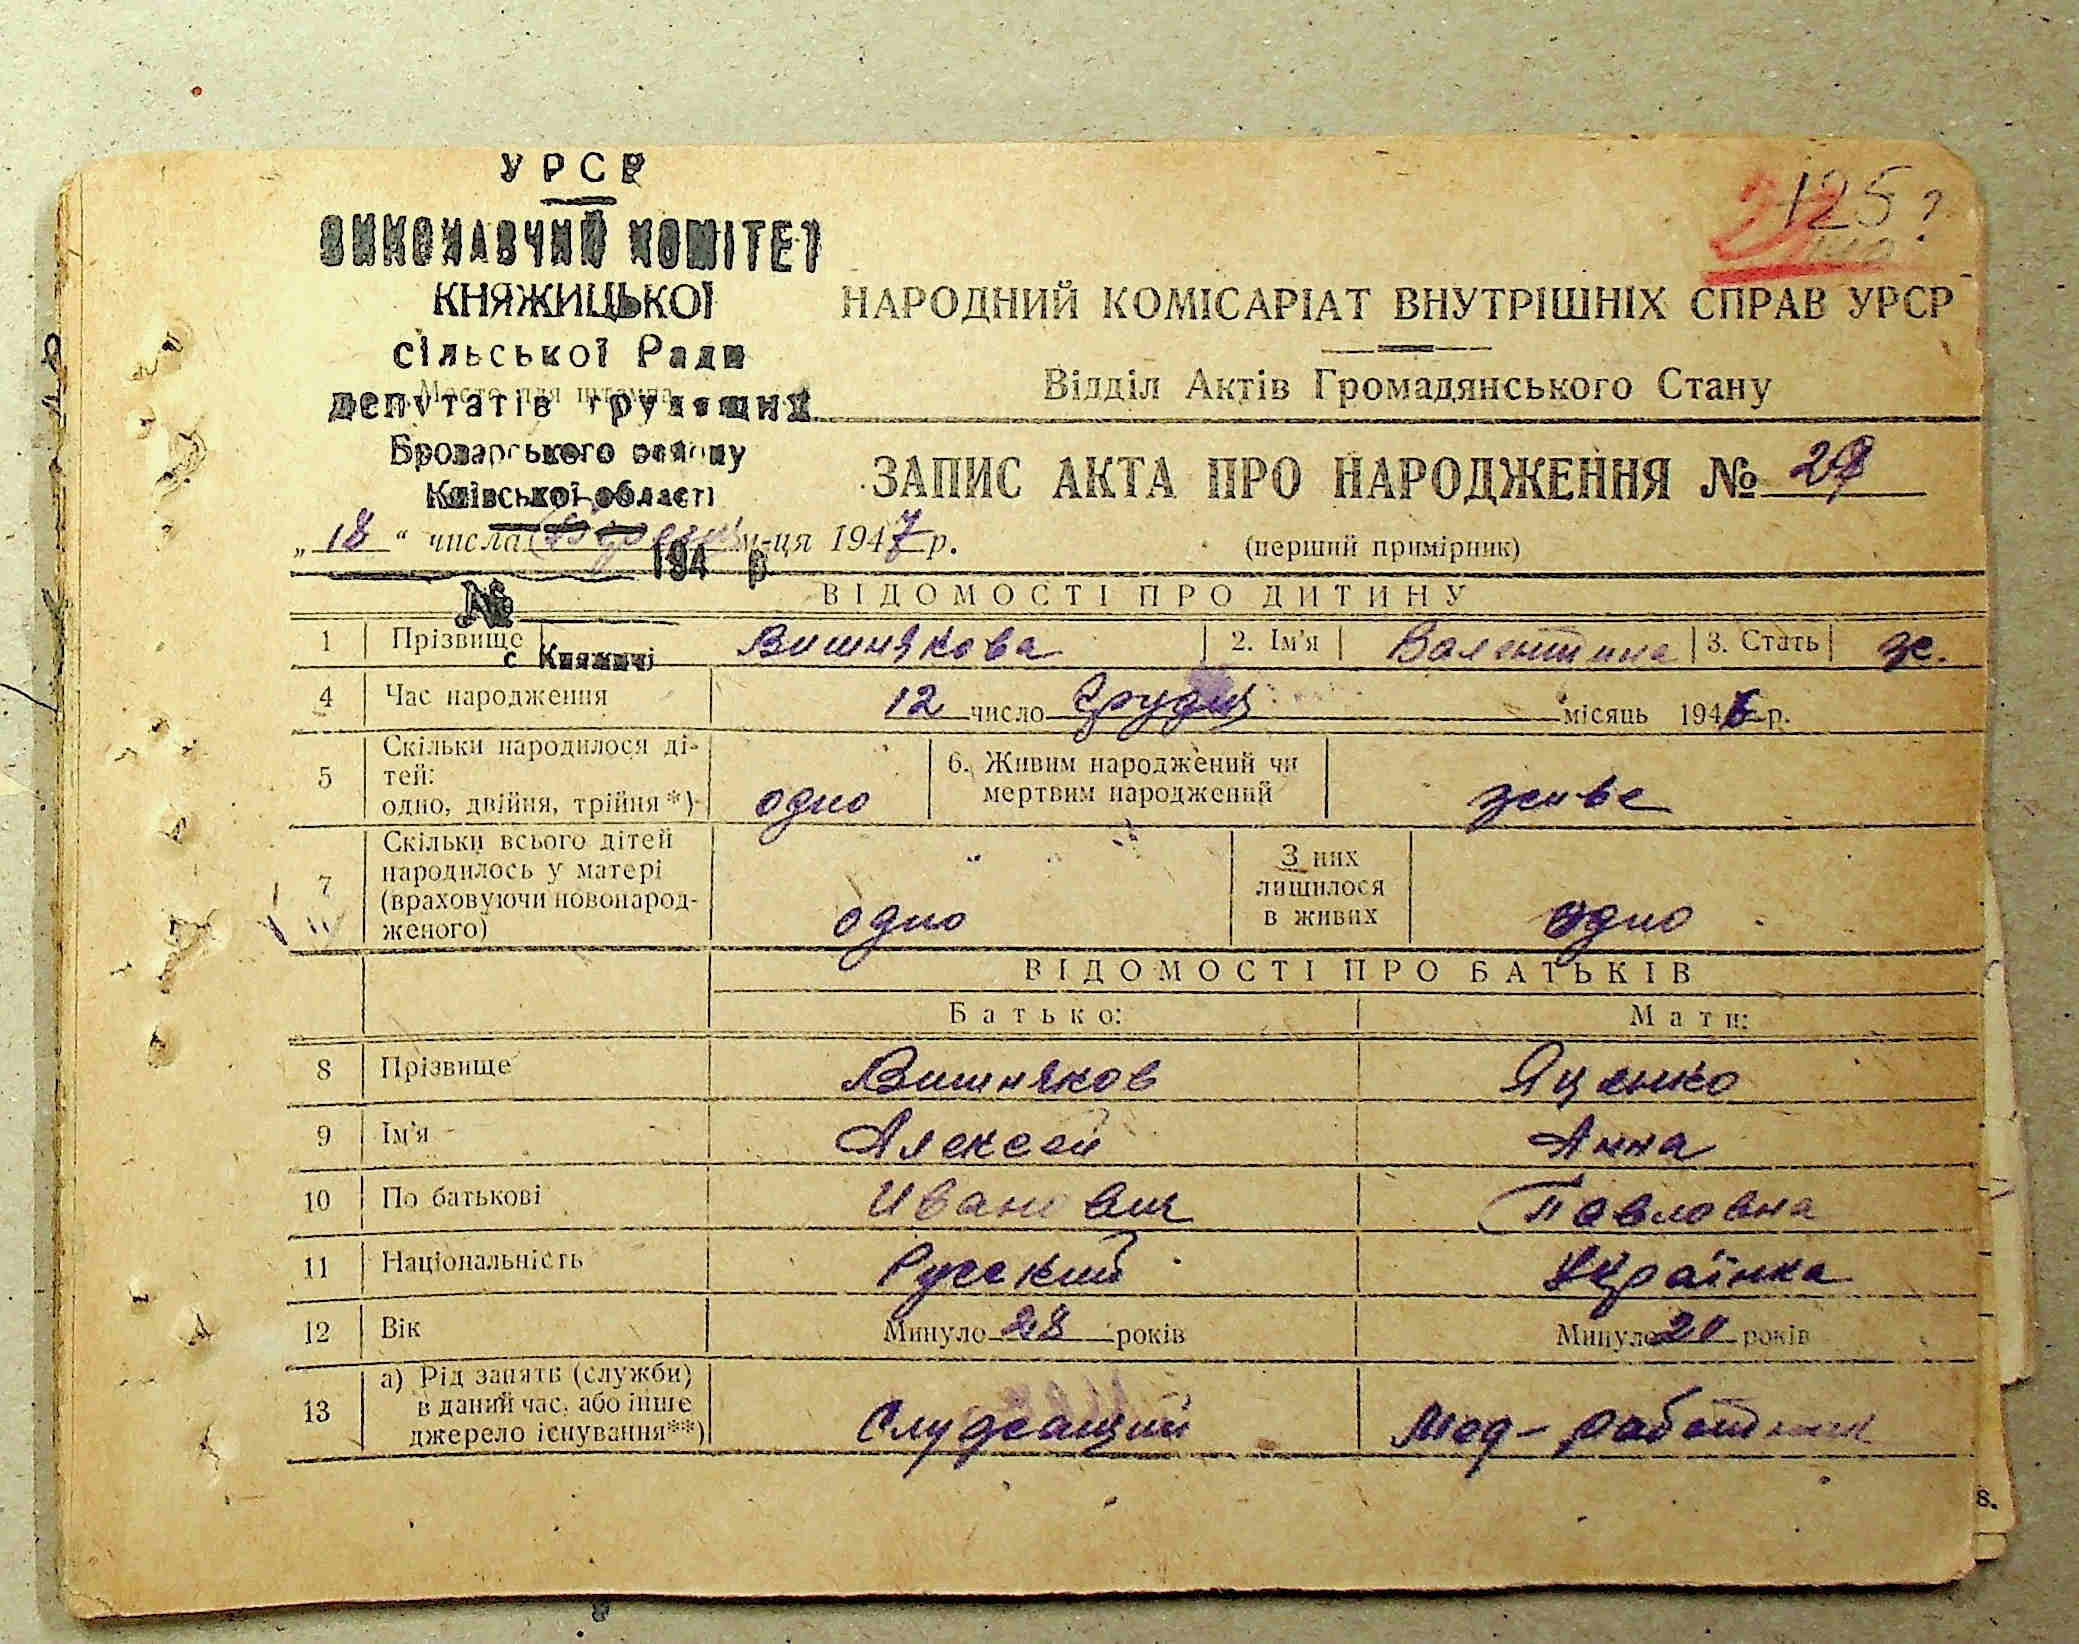 УРСР
ВИКОНАВЧИЙ КОМІТЕТ
КНЯЖИЦЬКОЇ
сільської Ради
депутатів трудящих
Броварського району
Київської області
194 р
№
с Княжичі
125?
НАРОДНИЙ КОМІСАРІАТ ВНУТРІШНІХ СПРАВ УРСР
Відділ Актів Громадянського Стану
Место для штампа
ЗАПИС АКТА ПРО НАРОДЖЕННЯ №
„ 18 “ числа м-ця 1947 р.
(перший примірник)
ВІДОМОСТІ ПРО ДИТИНУ
1 Прізвище Вишнякова 2. Ім'я Валентина 3. Стать ж.
4 Час народження 12 число Грудня місяць 1946 р.
5 Скільки народилося ді-
тей:
одно, двійня, трійня*) одно 6. Живим народжений чи
мертвим народжений живе
7 Скільки всього дітей
народилось у матері
(враховуючи новонарод-
женого) одно З них
лишилося
в живих одно
ВІДОМОСТІ ПРО БАТЬКІВ
Батько: Мати:
8 Прізвище Вишняков Яценко
9 Ім'я Алексей Анна
10 По батькові Иванович Павловна
11 Національність Русский Українка
12 Вік Минуло 28 років Минуло 20 років
13 а) Рід занять (служби)
в даний час, або інше
джерело існування**) Служащий Мед-работник
8.